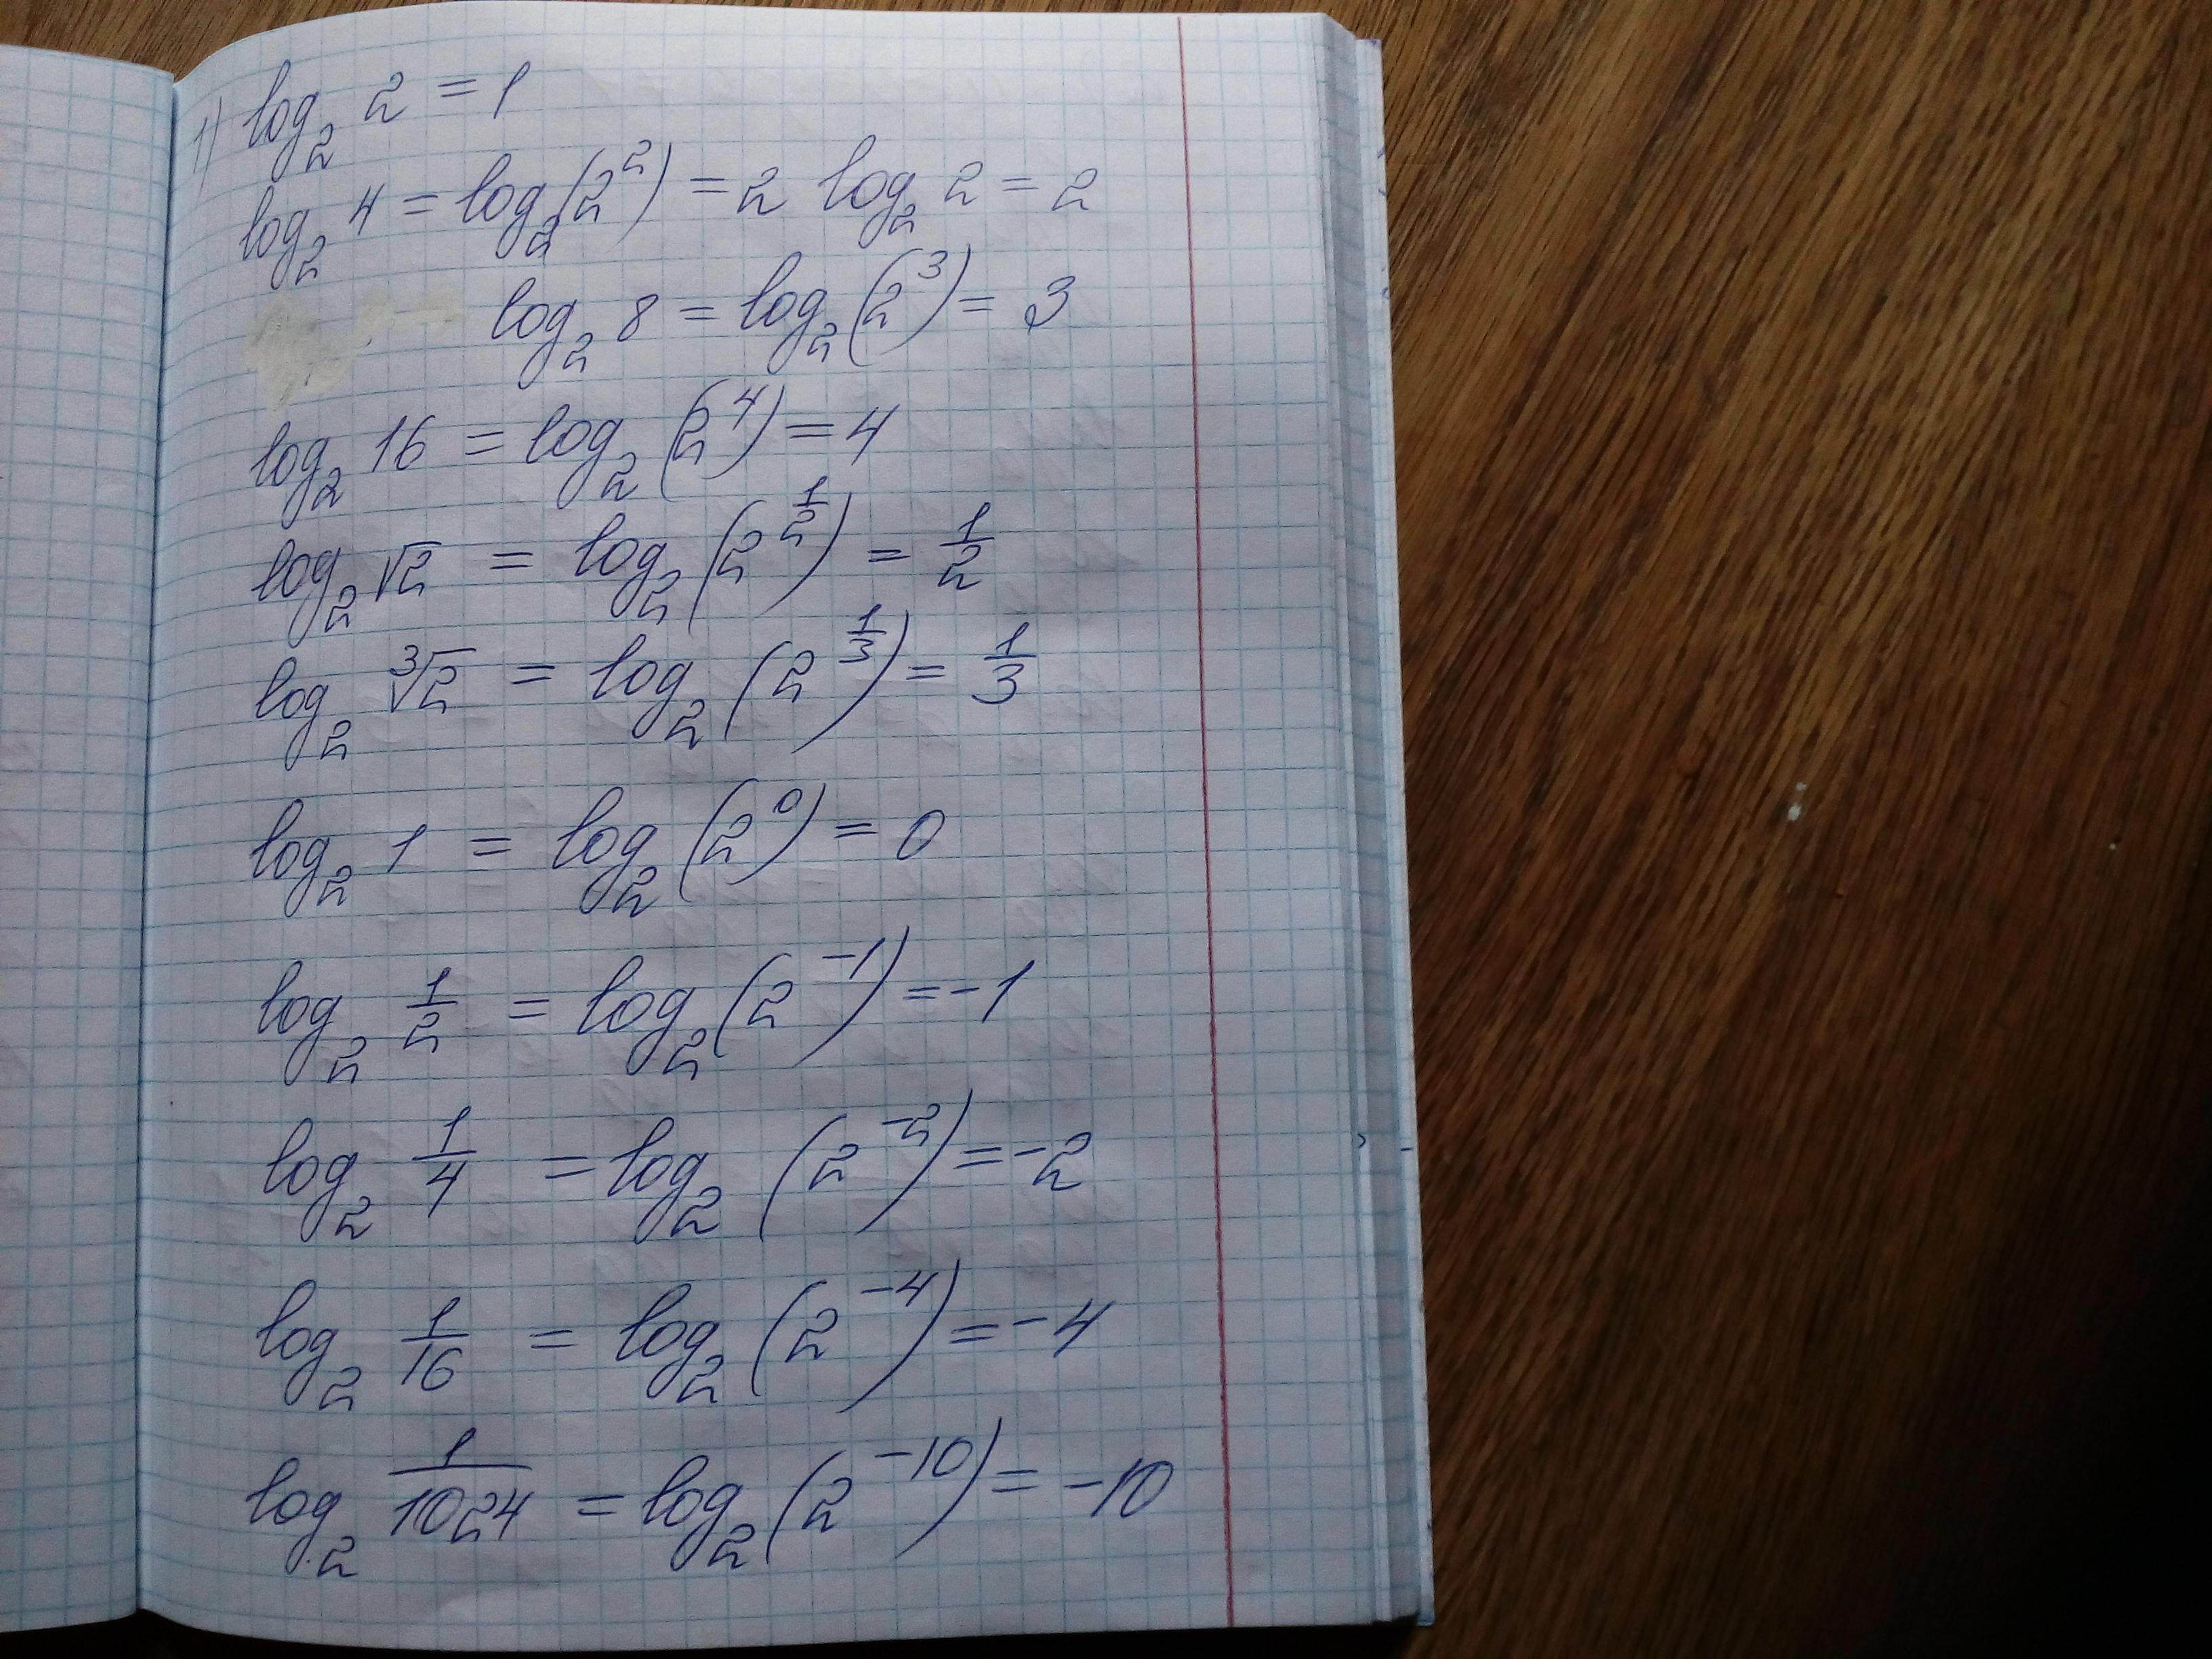 1) log₂ 2 = 1
log₂ 4 = log₂(2²) = 2 log₂ 2 = 2
log₂ 8 = log₂(2³) = 3
log₂ 16 = log₂(2⁴) = 4
log₂ √2 = log₂(2^(1/2)) = 1/2
log₂ ∛2 = log₂(2^(1/3)) = 1/3
log₂ 1 = log₂(2⁰) = 0
log₂ 1/2 = log₂(2⁻¹) = -1
log₂ 1/4 = log₂(2⁻²) = -2
log₂ 1/16 = log₂(2⁻⁴) = -4
log₂ 1/1024 = log₂(2⁻¹⁰) = -10